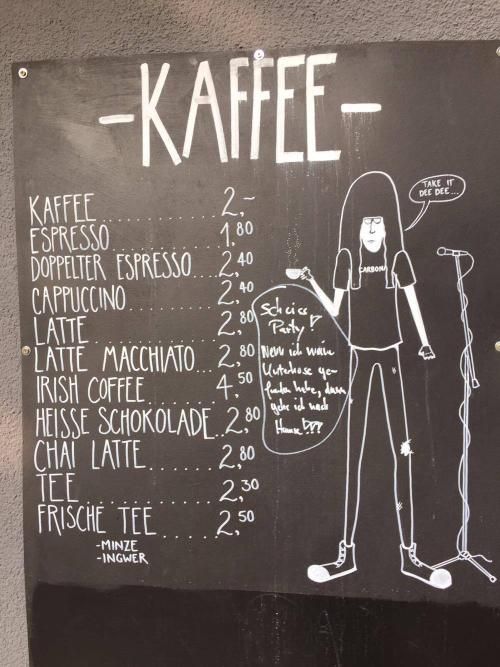 -KAFFEE-
KAFFEE.............2,-
ESPRESSO...........1,80
DOPPELTER ESPRESSO...2,40
CAPPUCCINO.........2,40
LATTE..............2,80
LATTE MACCHIATO...2,80
IRISH COFFEE.......4,50
HEISSE SCHOKOLADE..2,80
CHAI LATTE.........2,80
TEE................2,30
FRISCHE TEE........2,50
-MINZE
-INGWER
TAKE IT
DEE DEE...
CARBONA
Scheiss
Party!
Wenn ich meine
Unterhose ge-
funden habe, dann
gehe ich nach
Hause!!!